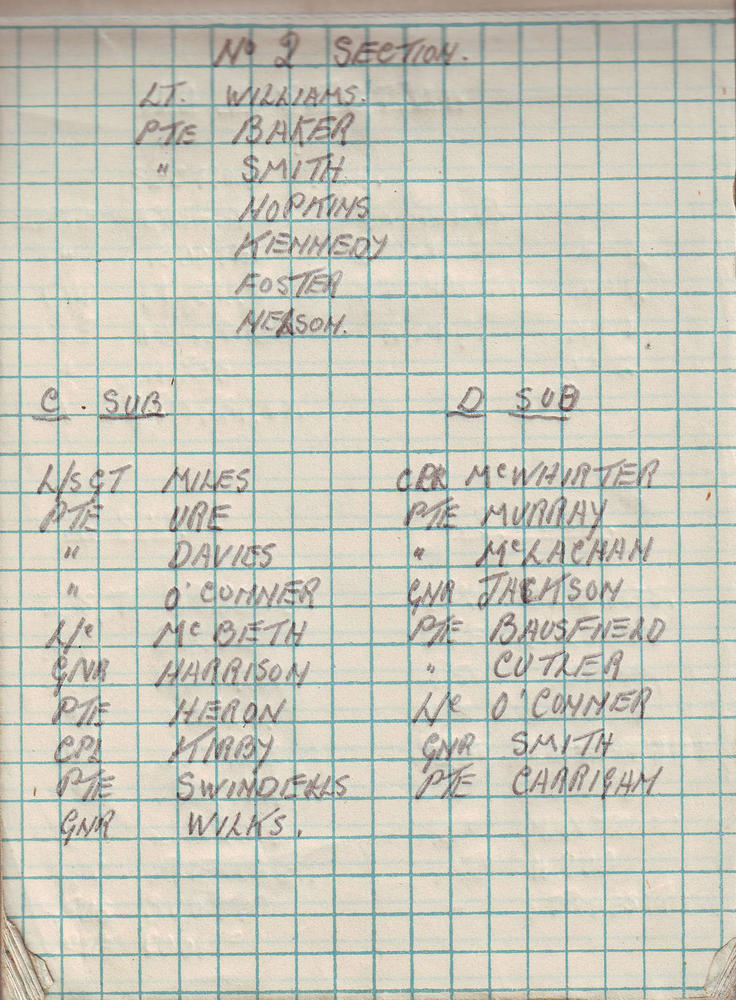 No 2 SECTION.
LT. WILLIAMS.
PTE BAKER
" SMITH
HOPKINS
KENNEDY
FOSTER
NELSON.
C. SUB
L/SGT MILES
PTE URE
" DAVIES
" O'CONNER
L/c McBETH
GNR HARRISON
PTE HERON
CPL KIRBY
PTE SWINDELLS
GNR WILKS.
D SUB
CPL McWHIRTER
PTE MURRAY
" McLACHAN
GNR JACKSON
PTE
" CUTLER
L/c O'CONNER
GNR SMITH
PTE CARRIGAN